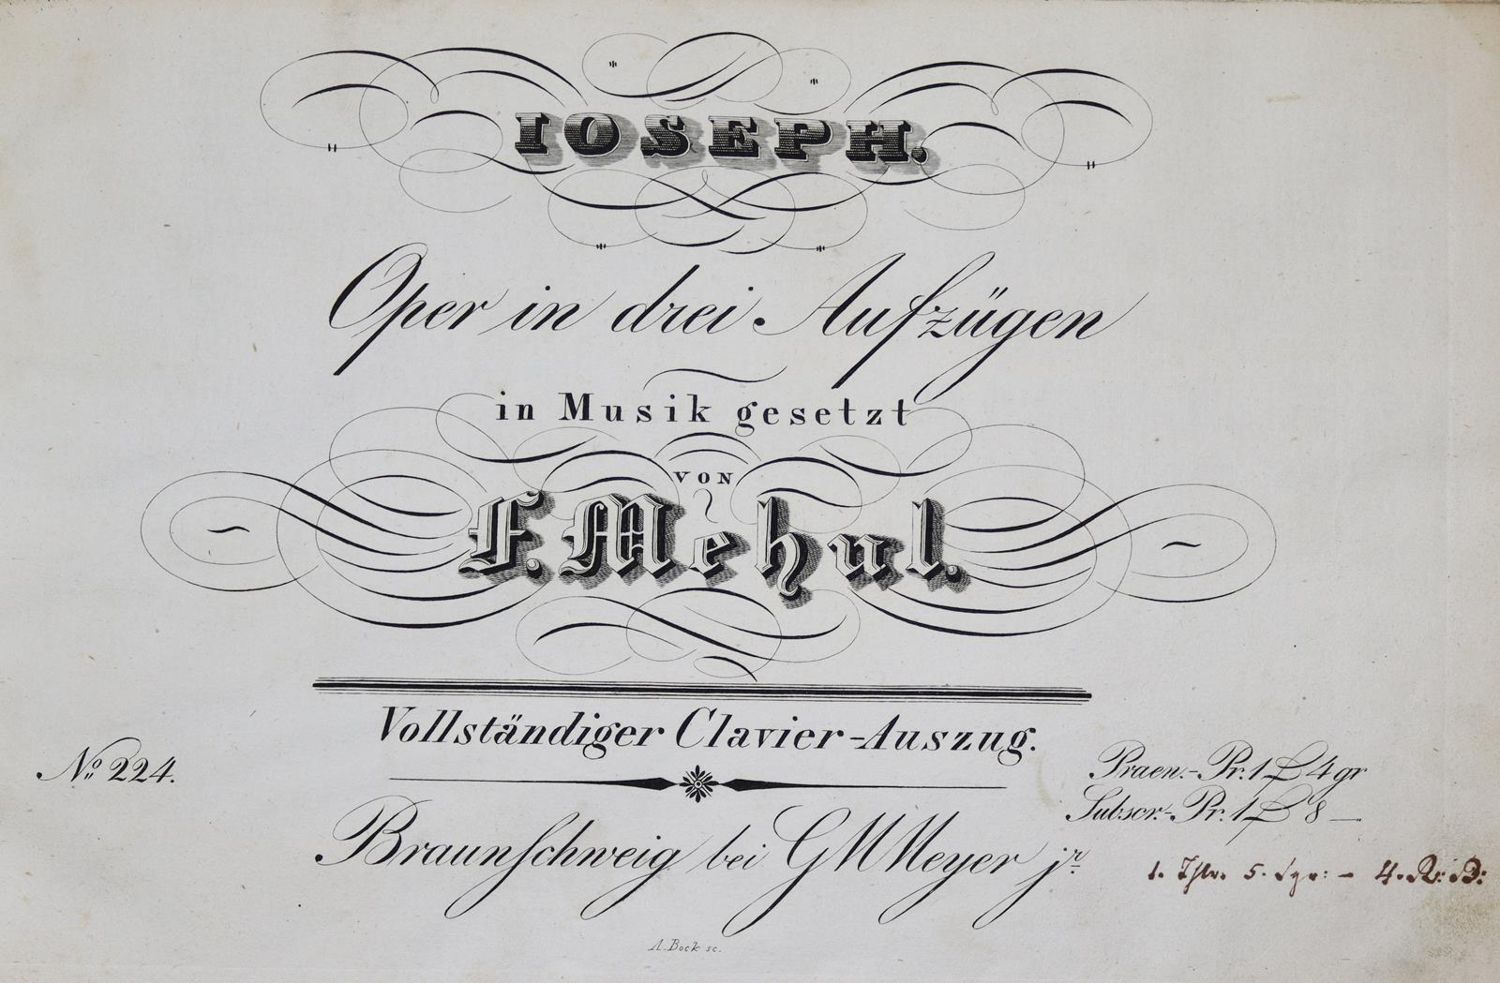 IOSEPH.
Oper in drei Aufzügen
in Musik gesetzt
VON
F. Mehul.
Vollständiger Clavier-Auszug.
No. 224.
Praen.-Pr. 1 4 gr
Subscr.-Pr. 1 8 —
Braunschweig bei G M Meyer jr.
1. Thlr. 5. Sgr: – 4.
A. Bock sc.